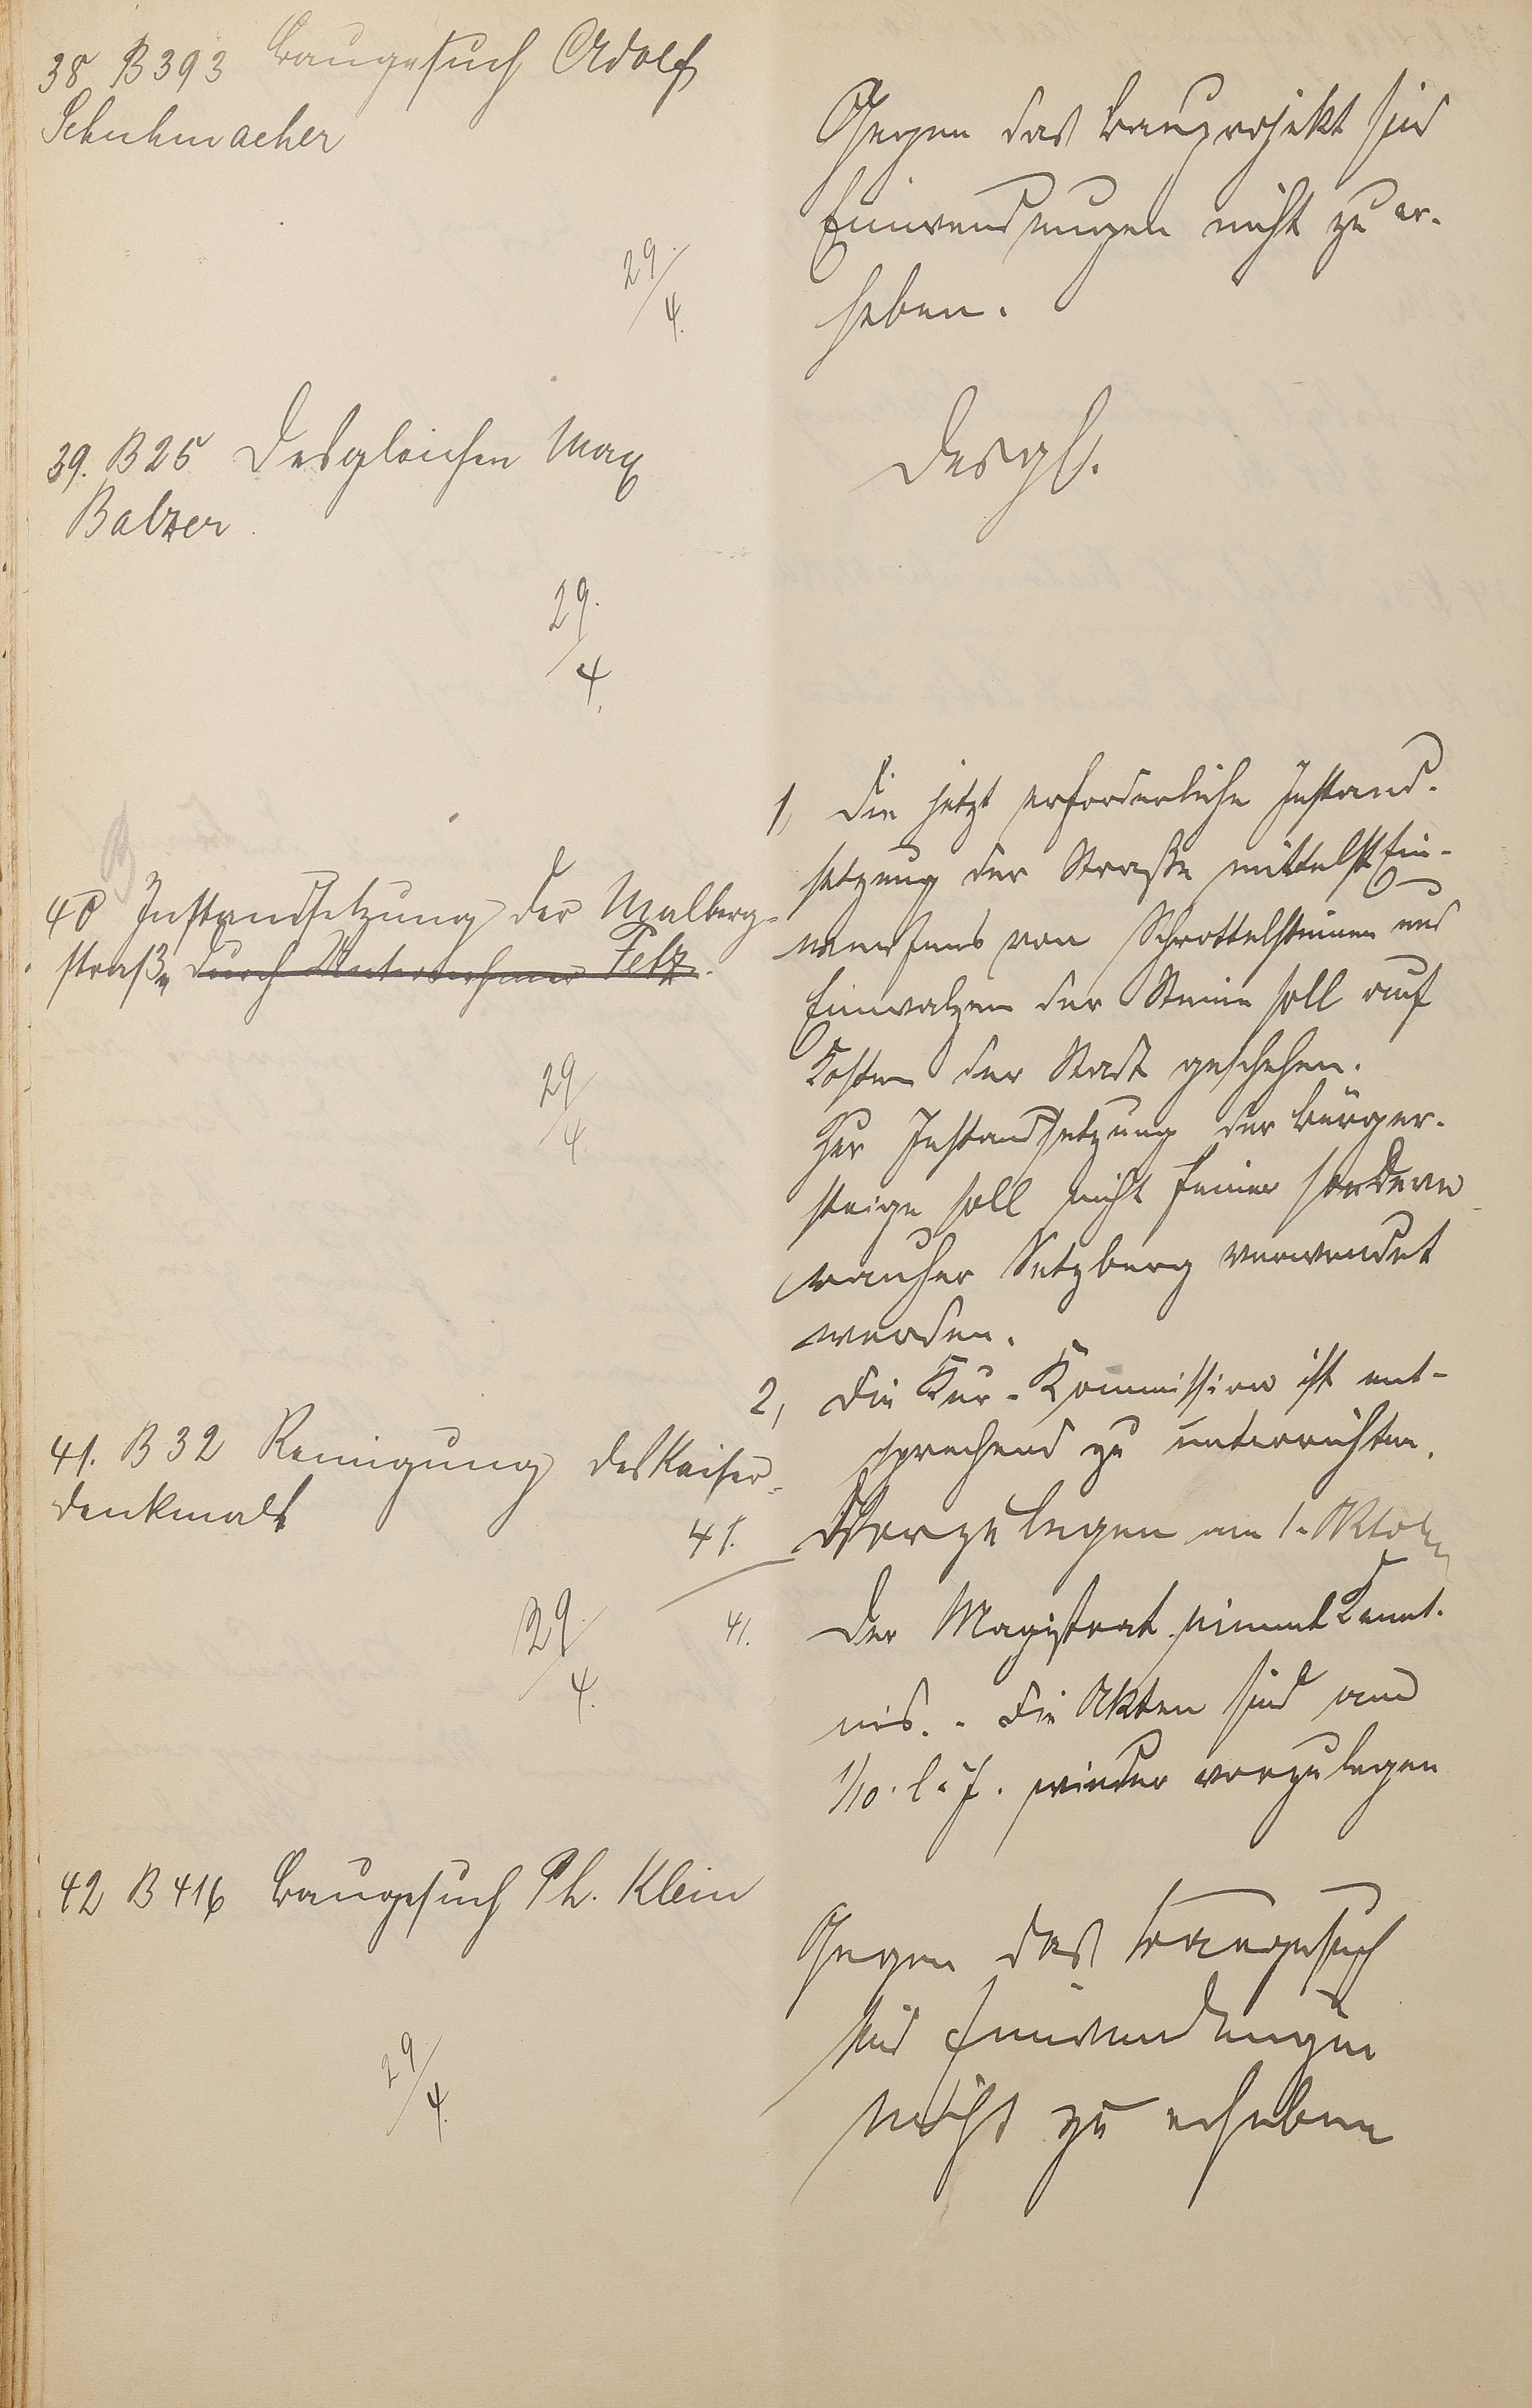 38 B 393 Baugesuch Adolf
Schuhmacher
Gegen das Bauprojekt sind
Einwendungen nicht zu er-
heben.
29./4.
39. B 25 Desgleichen Max
Balzer
Desgl.
29./4.
40 Instandsetzung der Malberg-
straße durch Unternehmer Felz.
29/4
1, Die jetzt erforderliche Instand-
setzung der Straße mittelst Ein-
werfens von Schrottelsteinen und
Einwalzen der Steine soll auf
Kosten der Stadt geschehen.
Zur Instandsetzung der Bürger-
steige soll nicht feiner sondern
rauher Setzberg verwendet
werden.
2, Die Kur-Kommission ist ent-
sprechend zu unterrichten.
41. B 32 Reinigung des Kaiser-
denkmals
29./4.
41. Vorzulegen am 1. Oktober
41. Der Magistrat nimmt Kennt-
nis. - Die Akten sind am
1/10. l. J. wieder vorzulegen
42 B 416 Baugesuch Ph. Klein
29/4.
Gegen das Baugesuch
sind Einwendungen
nicht zu erheben